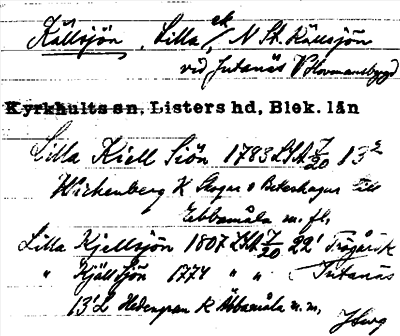 Källsjön, Lilla ek, N St. Källsjön
vid Jutanäs V Hovmansbygd
Kyrkhults sn, Listers hd, Blek. län
Lilla Kiell Siön 1783 LSA 7/20 13²
Wichenberg K Skogar o Beterhagar till
Ebbamåla m. fl.
Lilla Kjellsjön 1807 LSA 7/20 22¹
" Kjäll Sjön 1774 " " Jutanäs
13¹ L Hedengran K Åbbamåla m. m.